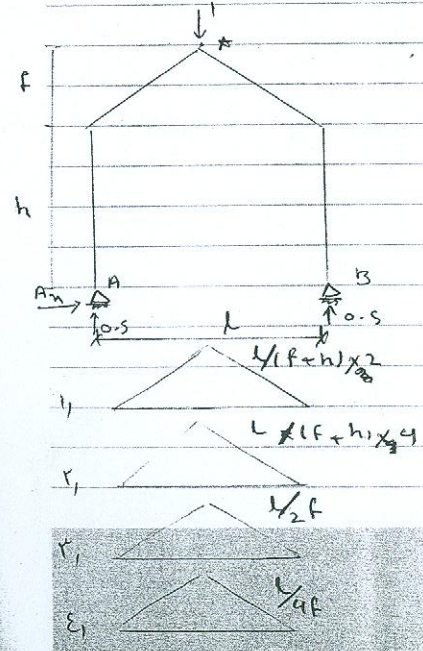 1
f
h
A
B
0.5
0.5
L
L/(f+h)×2
١,
L/(f+h)×4
٢,
L/2f
٣,
L/4f
٤,